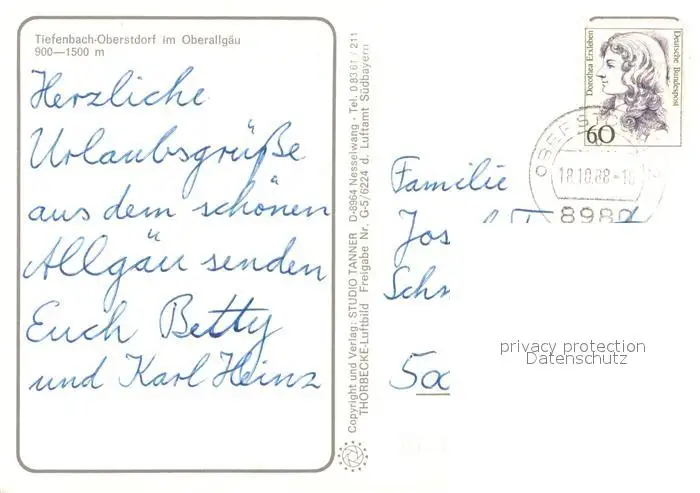 Tiefenbach-Oberstdorf im Oberallgäu
900—1500 m
Herzliche
Urlaubsgrüße
aus dem schönen
Allgäu senden
Euch Betty
und Karl Heinz
Copyright und Verlag: STUDIO TANNER D-8964 Nesselwang - Tel. 0 83 61 / 211
THORBECKE-Luftbild Freigabe Nr. G-5/6224 d. Luftamt Südbayern
Dorothea Erxleben
Deutsche Bundespost
60
18.10.88
898
Familie
Jos
privacy protection
Datenschutz